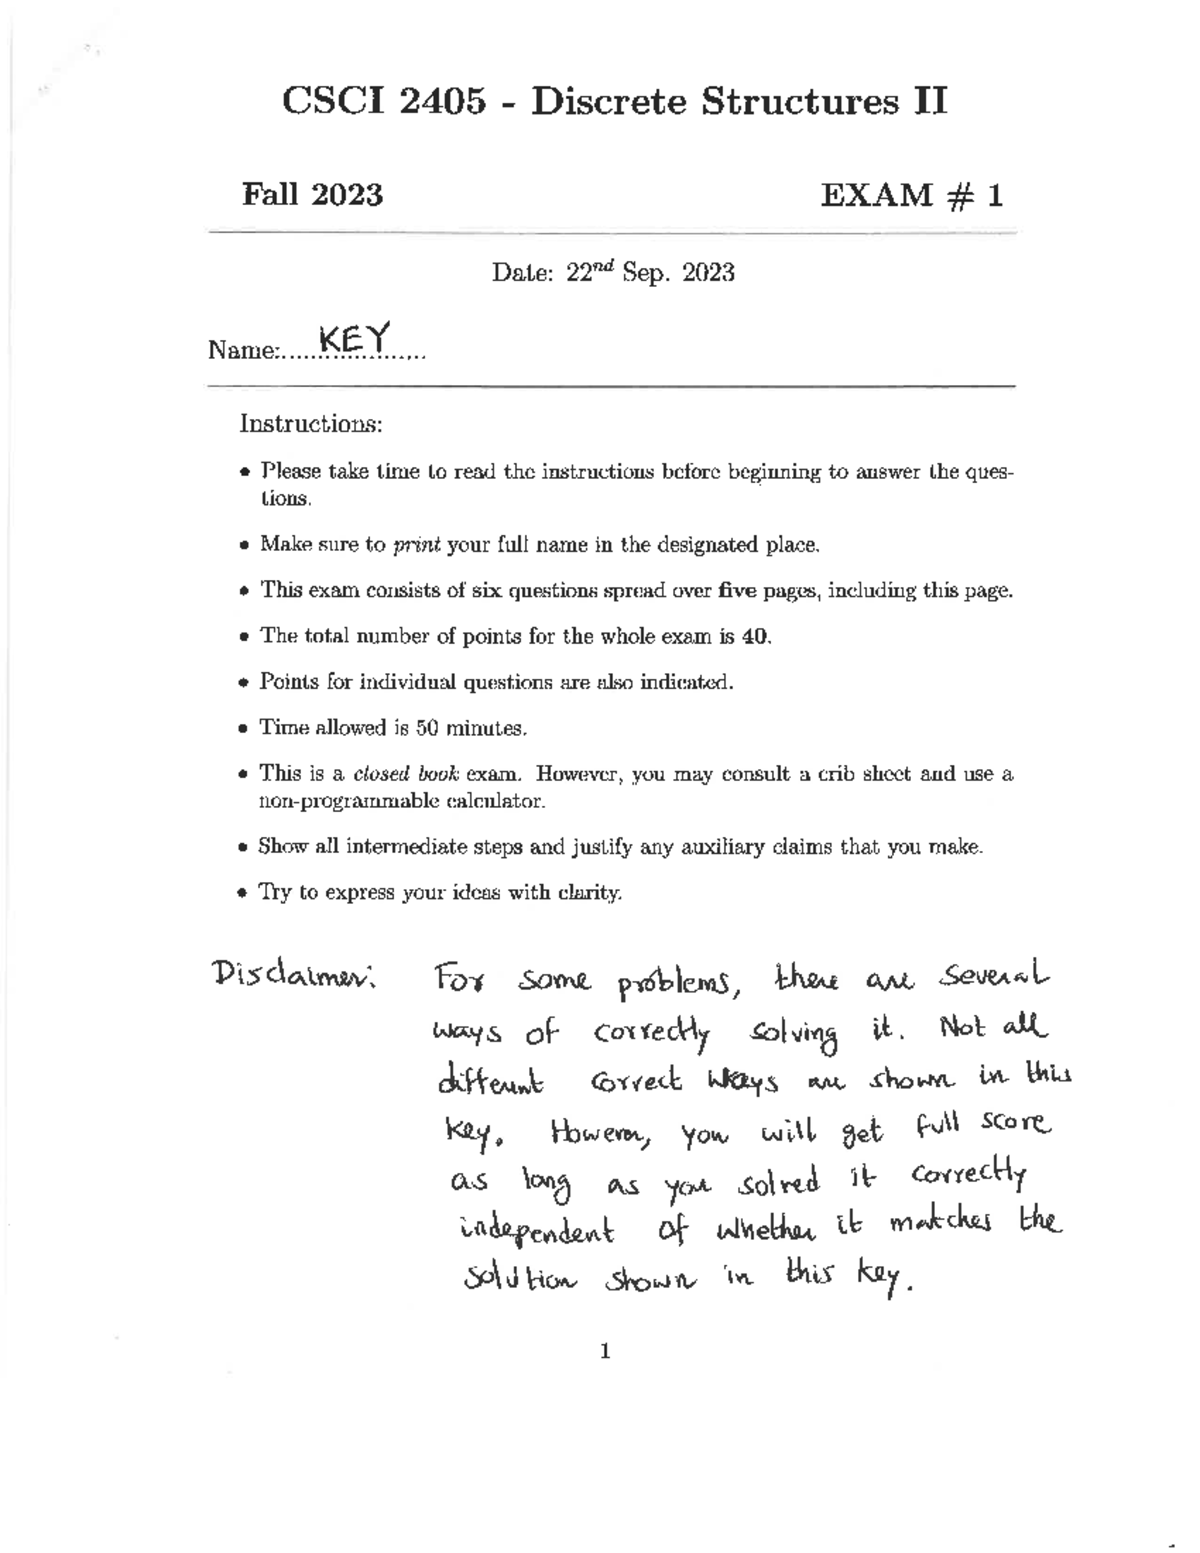 CSCI 2405 - Discrete Structures II
Fall 2023 EXAM # 1
Date: 22nd Sep. 2023
Name:.....KEY.....
Instructions:
• Please take time to read the instructions before beginning to answer the ques-
tions.
• Make sure to print your full name in the designated place.
• This exam consists of six questions spread over five pages, including this page.
• The total number of points for the whole exam is 40.
• Points for individual questions are also indicated.
• Time allowed is 50 minutes.
• This is a closed book exam. However, you may consult a crib sheet and use a
non-programmable calculator.
• Show all intermediate steps and justify any auxiliary claims that you make.
• Try to express your ideas with clarity.
Disclaimer: For some problems, there are several
ways of correctly solving it. Not all
different correct ways are shown in this
key. However, you will get full score
as long as you solved it correctly
independent of whether it matches the
solution shown in this key.
1